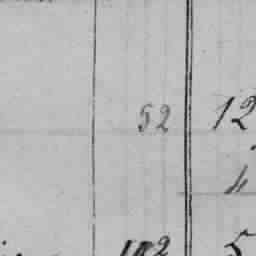 52 12
4
102 5